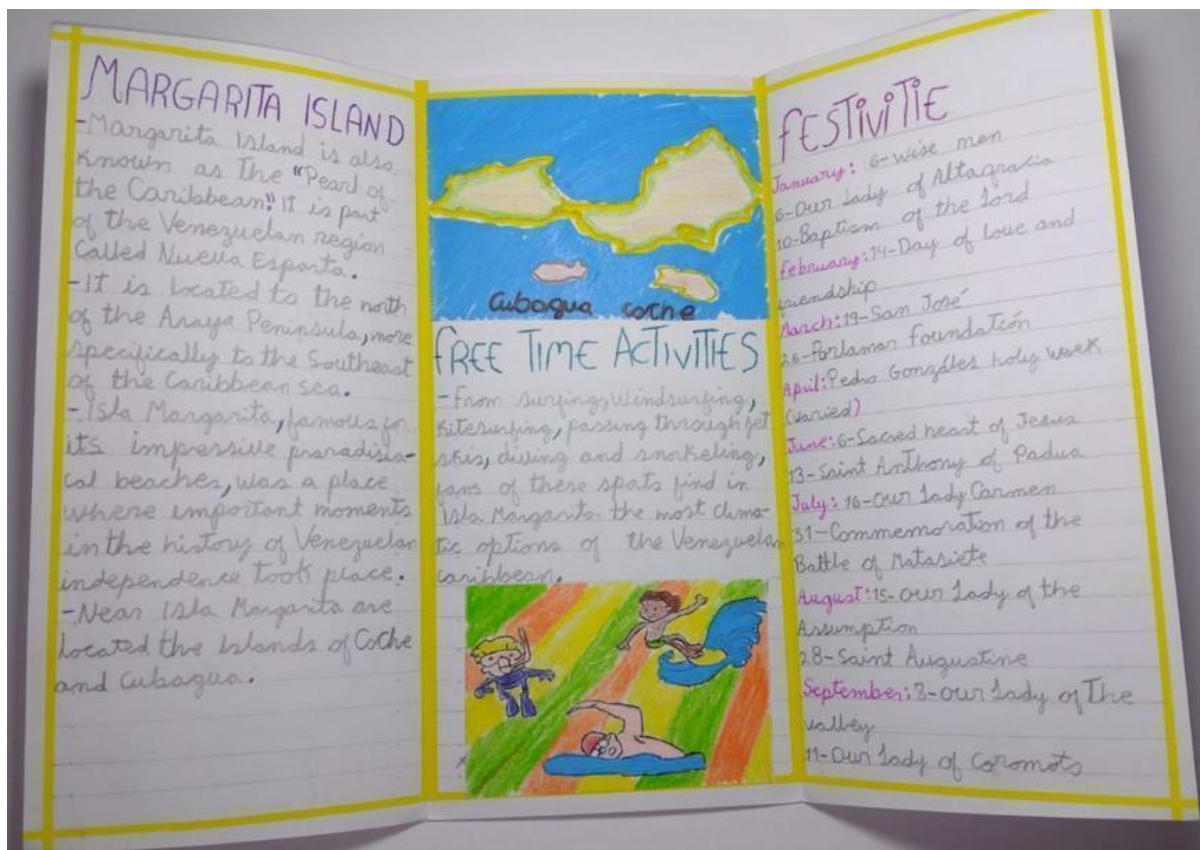 MARGARITA ISLAND
-Margarita Island is also
known as The "Pearl of
the Caribbean". It is part
of the Venezuelan region
Called Nueva Esparta.
-It is located to the north
of the Araya Peninsula, more
specifically to the Southeast
of the Caribbean sea.
-Isla Margarita, famous for
its impressive praradisia-
cal beaches, was a place
where important moments
in the history of Venezuelan
independence took place.
-Near Isla Margarita are
located the Islands of Coche
and Cubagua.
Cubagua coche
FREE TIME ACTIVITIES
-From surfing, Windsurfing,
Kitesurfing, passing through jet
skis, diving and snorkeling,
fans of these spots find in
Isla Margarita the most clima-
tic options of the Venezuelan
caribbean.
FESTIVITIE
January: 6-Wise men
6-Our Lady of Altagracia
10-Baptism of the Lord
February: 14-Day of love and
friendship
March: 19-San José
26-Porlamar Foundatión
April: Pedro Gonzáles holy week
(varied)
June: 6-Sacred heart of Jesus
13-Saint Anthony of Padua
July: 16-Our Lady Carmen
31-Commemoration of the
Battle of Matasiete
August: 15-Our Lady of the
Assumption
28-Saint Augustine
September: 8-Our Lady of The
valley
11-Our Lady of Coromots